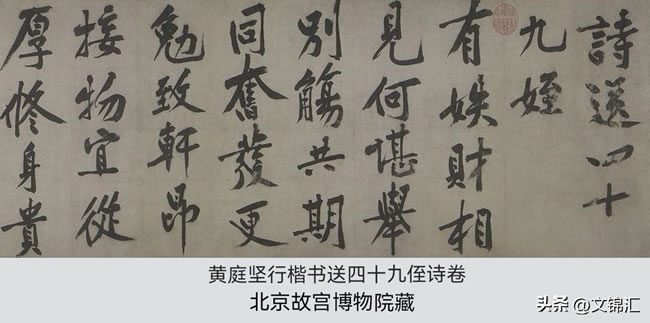 詩送四十
九姪
有娛財相
見何堪舉
別觴共期
同奮發更
勉致軒昂
接物宜從
厚修身貴
黄庭坚行楷书送四十九侄诗卷
北京故宫博物院藏
头条 @文锦汇